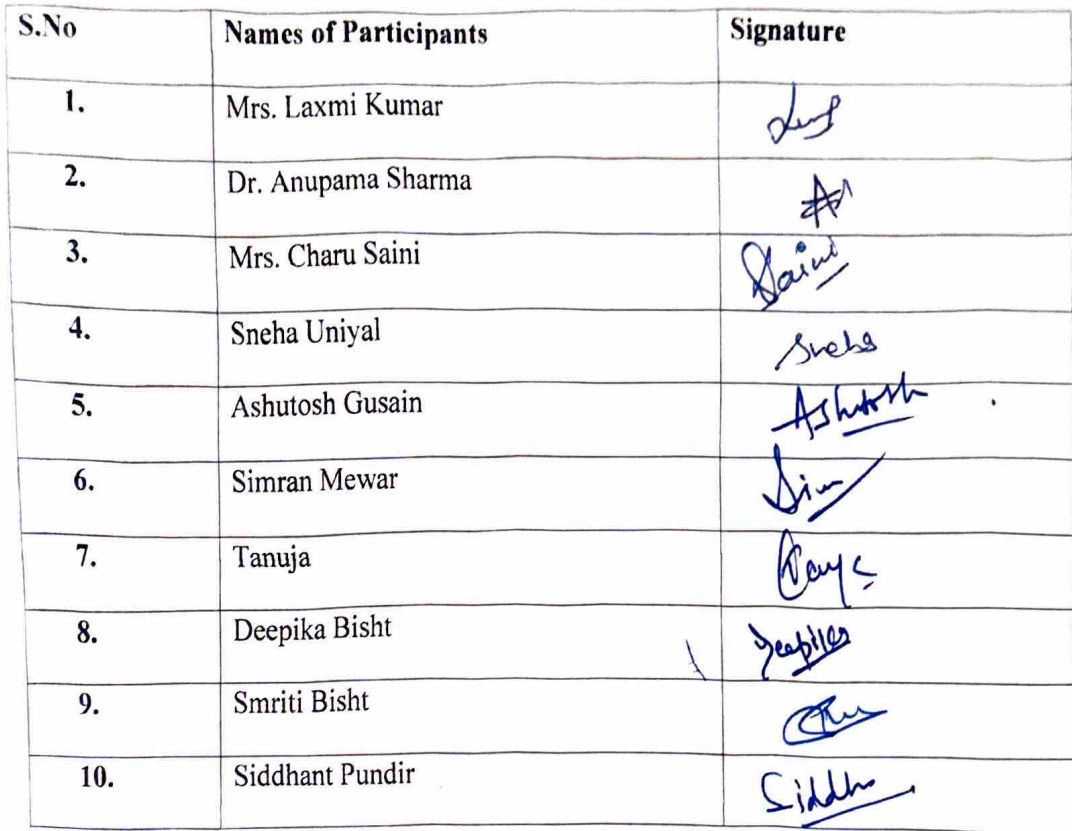 S.No Names of Participants Signature
1. Mrs. Laxmi Kumar
2. Dr. Anupama Sharma
3. Mrs. Charu Saini Saini
4. Sneha Uniyal Sneha
5. Ashutosh Gusain Ashutosh
6. Simran Mewar Sim
7. Tanuja
8. Deepika Bisht Deepika
9. Smriti Bisht
10. Siddhant Pundir Siddh